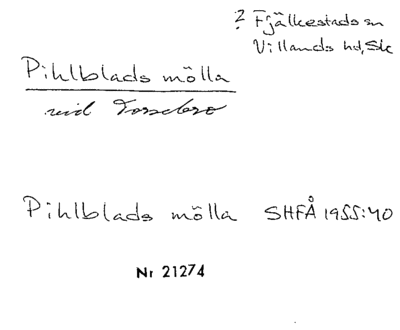 ? Fjälkestads sn
Villands hd, Sk
Pihlblads mölla
vid Torsebro
Pihlblads mölla SHFÅ 1955:40
Nr 21274